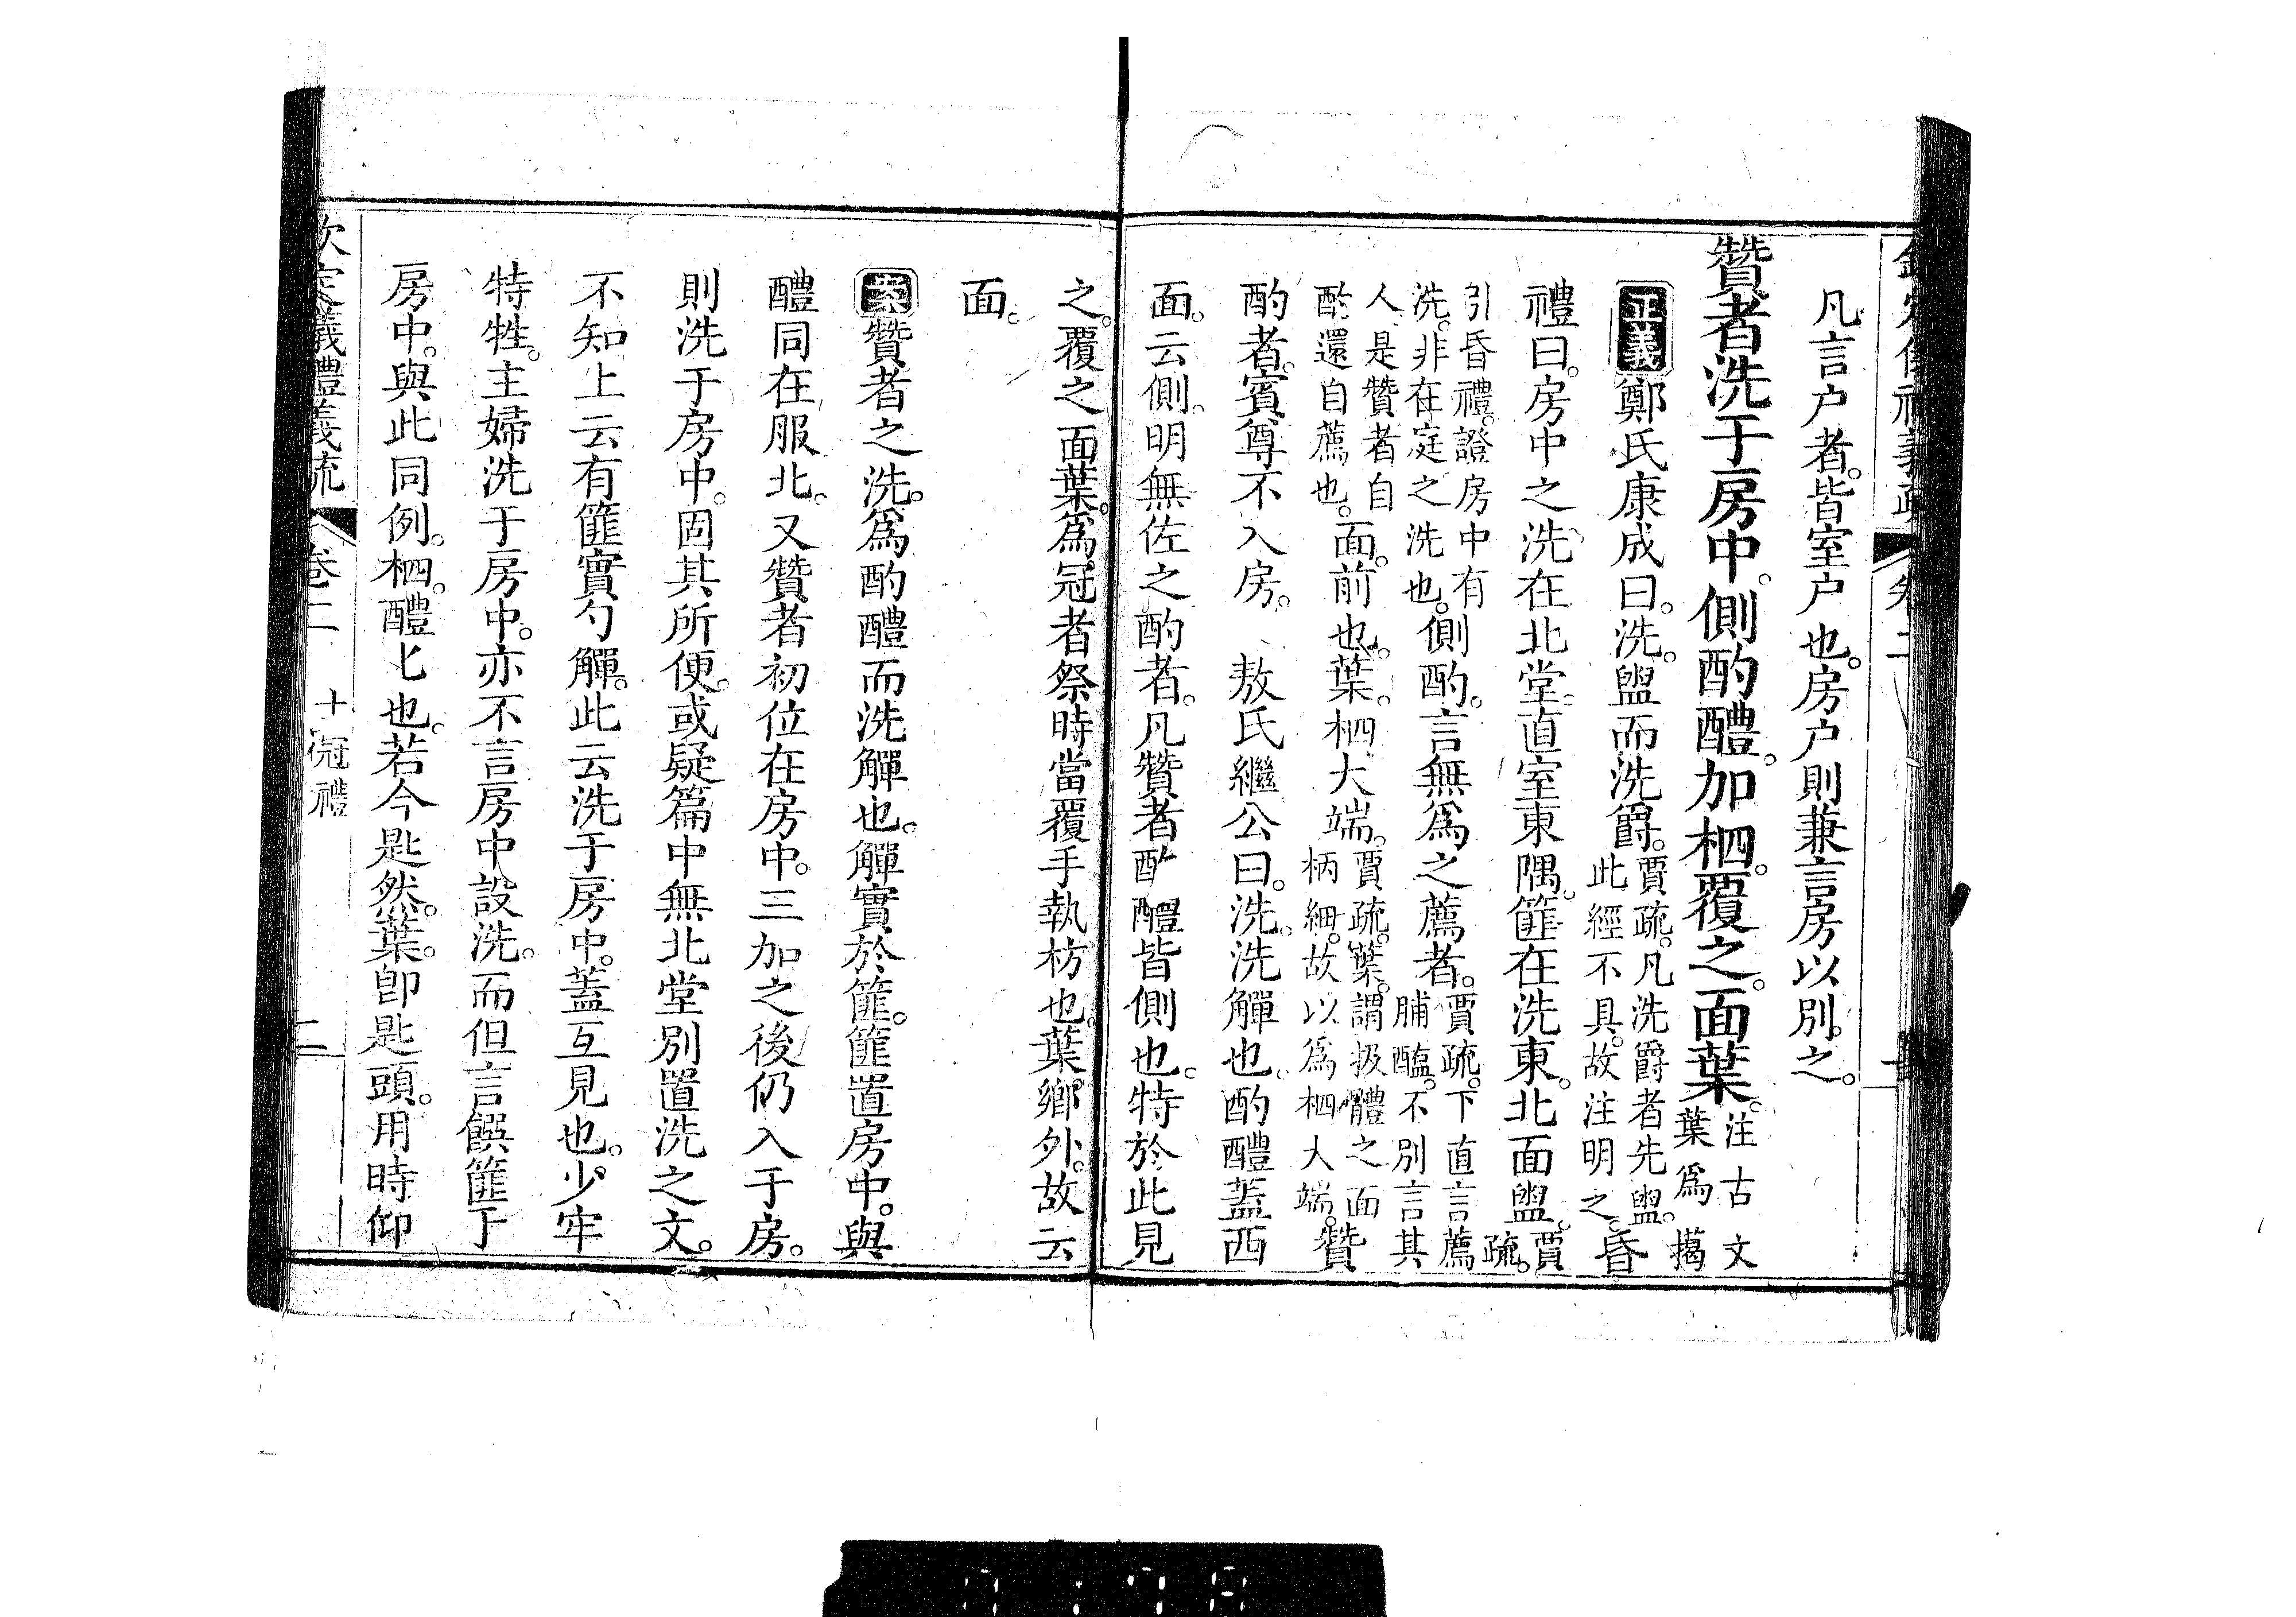 凡言户者。皆室户也。房户則兼言房以別之。
贊者洗于房中。側酌醴。加柶。覆之。面葉。注古文葉爲擖
正義鄭氏康成曰。洗。盥而洗爵。賈疏。凡洗爵者先盥。此經不具。故注明之。昏
禮曰。房中之洗。在北堂。直室東隅。篚在洗東。北面盥。賈疏。
引昏禮。證房中有洗。非在庭之洗也。側酌。言無爲之薦者。賈疏。下直言薦脯醢。不別言其
人。是贊者自酌還自薦也。面。前也。葉。柶大端。賈疏。葉。謂扱醴之面柄細。故以爲柶大端。贊
酌者。賓尊不入房。 敖氏繼公曰。洗。洗觶也。酌醴蓋西
面。云側。明無佐之酌者。凡贊者酌醴皆側也。特於此見
之。覆之面葉。爲冠者祭時當覆手執枋也。葉鄉外。故云
面。
案贊者之洗。爲酌醴而洗觶也。觶實於篚。篚置房中。與
醴同在服北。又贊者初位在房中。三加之後仍入于房。
則洗于房中。固其所便。或疑篇中無北堂別置洗之文。
不知上云有篚實勺觶。此云洗于房中。蓋互見也。少牢
特牲。主婦洗于房中。亦不言房中設洗。而但言饌篚于
房中。與此同例。柶。醴匕也。若今匙然。葉。卽匙頭。用時仰
欽定儀禮義疏 卷二 士冠禮 二